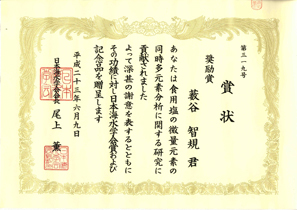 第三一九号
賞状
奨励賞
薮谷 智規 君
あなたは食用塩の微量元素の
同時多元素分析に関する研究に
貢献されました
よって深甚の謝意を表するとともに
その功績に対し日本海水学会賞および
記念品を贈呈します
平成二十三年六月九日
日本海水学会会長 尾上 薫